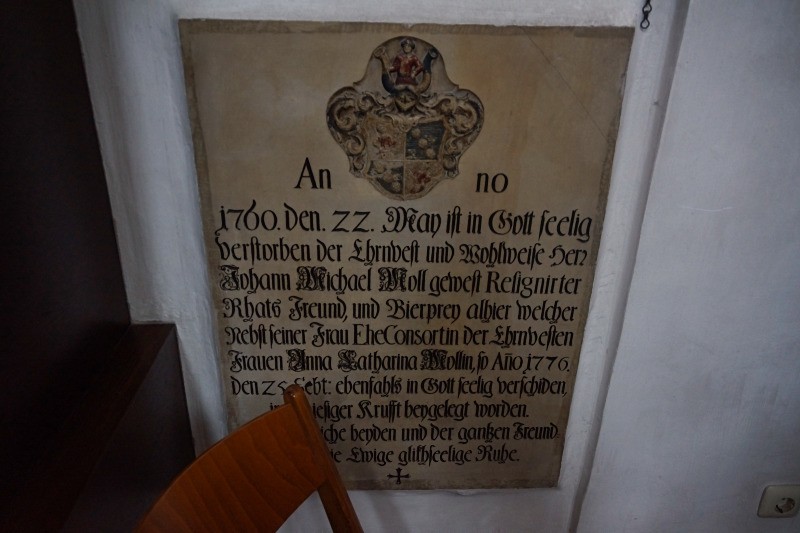 An no
1760. den. 22. May ist in Gott seelig
verstorben der Ehrnvest und Wohlweise Herr
Johann Michael Moll gewest Resignirter
Rhats Freund, und Bierprey alhier welcher
Nebst seiner Frau EheConsortin der Ehrnvesten
Frauen Anna Catharina Mollin, so Año 1776.
den 25 Sebt: ebenfahls in Gott seelig verschiden,
Krufft beygelegt worden.
beyden und der gantzen Freund
Ewige glikhseelige Ruhe.